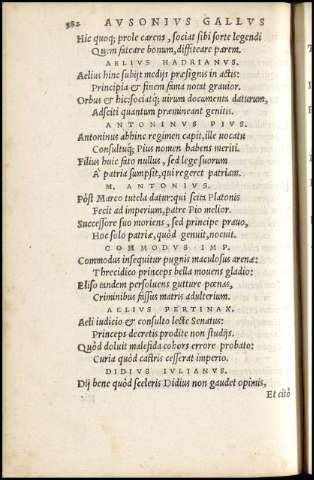 382 AVSONIVS GALLVS
Hic quoq; prole carens, sociat sibi sorte legendi
Quem fateare bonum, diffiteare parem.
AELIVS HADRIANVS.
Aelius hinc subijt medijs præsignis in actis:
Principia & finem fama notat grauior.
Orbus & hic: sociatq; uirum documenta daturum,
Adsciti quantum præmineant genitis.
ANTONINVS PIVS.
Antoninus abhinc regimen capit, ille uocatu
Consultuq; Pius nomen habens meriti.
Filius huic fato nullus, sed lege suorum
A' patria sumpsit, qui regeret patriam.
M. ANTONIVS.
Pòst Marco tutela datur: qui scita Platonis
Fecit ad imperium, patre Pio melior.
Successore suo moriens, sed principe prauo,
Hoc solo patriæ, quòd genuit, nocuit.
COMMODVS IMP.
Commodus insequitur pugnis maculosus arenæ:
Threcidico princeps bella mouens gladio:
Eliso tandem persoluens gutture pœnas,
Criminibus fassus matris adulterium.
AELIVS PERTINAX.
Aeli iudicio & consulto lecte Senatus:
Princeps decretis prodite non studijs.
Quòd doluit malefida cohors errore probato:
Curia quòd castris cesserat imperio.
DIDIVS IVLIANVS.
Dij bene quòd sceleris Didius non gaudet opimis,
Et citò